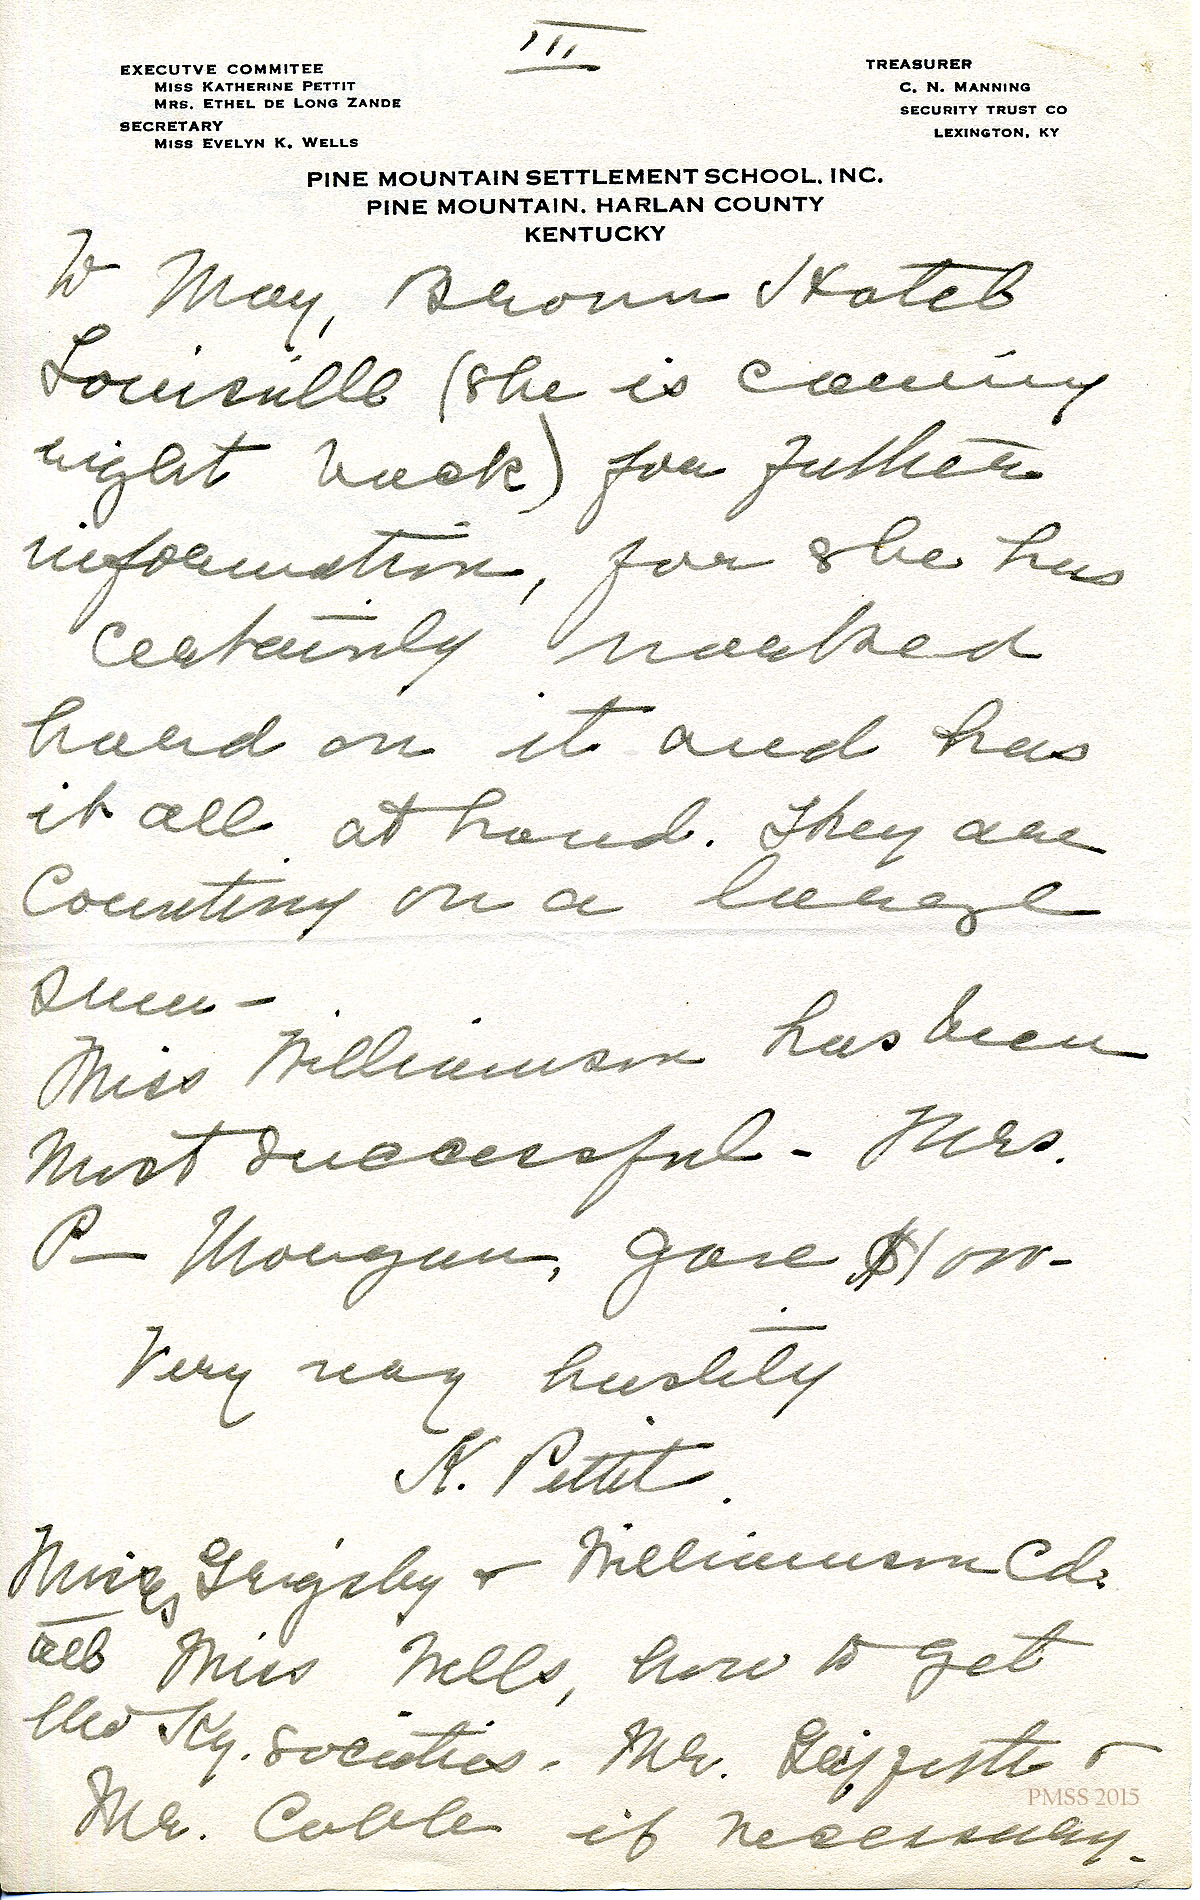 III
EXECUTVE COMMITEE
MISS KATHERINE PETTIT
MRS. ETHEL DE LONG ZANDE
SECRETARY
MISS EVELYN K. WELLS
TREASURER
C. N. MANNING
SECURITY TRUST CO
LEXINGTON, KY
PINE MOUNTAIN SETTLEMENT SCHOOL, INC.
PINE MOUNTAIN. HARLAN COUNTY
KENTUCKY
to May, Brown Hotel
Louisville (she is coming
right back) for futher
information, for she has
certainly worked
hard on it and has
it all at hand. They are
counting on a large
sum -
Miss Williamson has been
most successful - Mrs.
P— Morgan, gave $1000-
Very hastily
K. Pettit.
Misses Grigsby & Williamson Cd.
tell Miss Wells, how to get
the Ky. societies. Mr. &
Mr. Cobb if necessary.
PMSS 2015